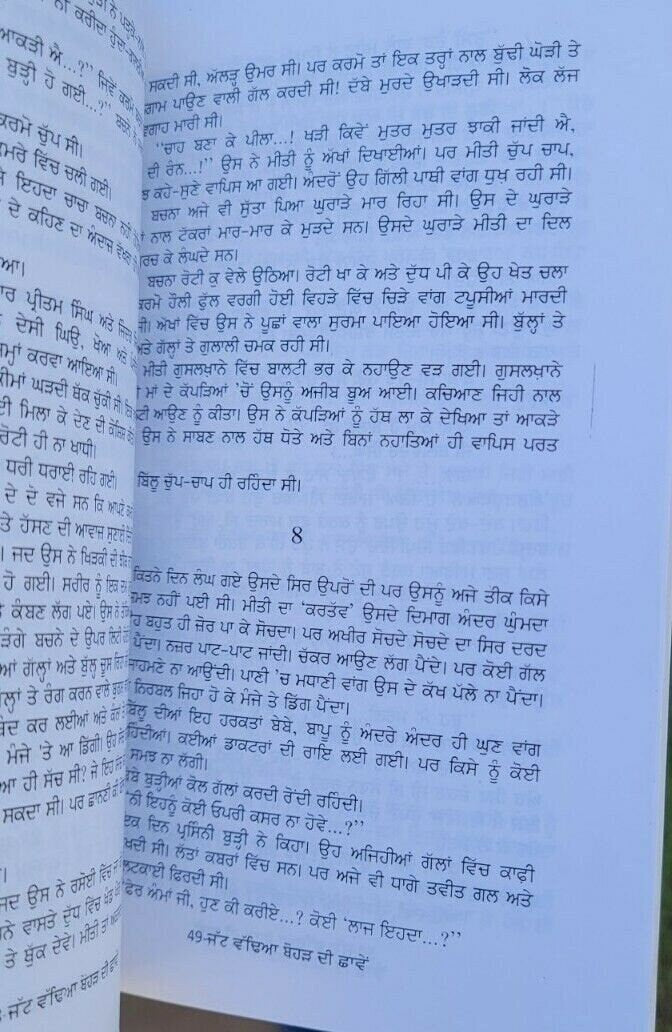 ਨੀ ਕਰੀਦਾ ਹੁੰਦਾ
ਆਕੜੀ ਐ...?” ਜਿਵੇਂ ਕਰਮੋ
ਬੁੜ੍ਹੀ ਹੋ ਗਈ...?”
ਕਰਮੋ ਚੁੱਪ ਸੀ।
ਮਰੇ ਵਿੱਚ ਚਲੀ ਗਈ।
ਇਹਦਾ ਚਾਚਾ ਬਚਨਾ ਨਹੀਂ
ਦੇ ਕਹਿਣ ਦਾ ਅੰਦਾਜ਼ ਵੱਖਰਾ
ਆ।
ਾਰ ਪ੍ਰੀਤਮ ਸਿੰਘ ਅਤੇ
ਦੇਸੀ ਘਿਉ, ਖੋਆ ਅਤੇ
ਜਮ੍ਹਾਂ ਕਰਵਾ ਆਇਆ ਸੀ।
ਕੀਮਾਂ ਘੜਦੀ ਥੱਕ ਚੁੱਕੀ ਸੀ।
ਈ ਮਿਲਾ ਕੇ ਦੇਣ ਦੀ ਕੋਸ਼ਿਸ਼
ਰੋਟੀ ਹੀ ਨਾ ਖਾਧੀ।
ਧਰੀ ਧਰਾਈ ਰਹਿ ਗਈ।
ਦੇ ਦੋ ਵਜੇ ਸਨ ਕਿ ਆਪਣੇ
ਤੇ ਹੱਸਣ ਦੀ ਆਵਾਜ਼ ਸੁਣਾਈ
। ਜਦ ਉਸ ਨੇ ਖਿੜਕੀ ਦੀ
ਹੋ ਗਈ। ਸਰੀਰ ਨੂੰ ਇਕ ਦਮ
ਕੰਬਣ ਲੱਗ ਪਏ। ਉਸ ਨੇ
ੜੰਗੇ ਬਚਨੇ ਦੇ ਉਪਰ ਲਿਟੀ
ਆਂ ਗੱਲ੍ਹਾਂ ਅਤੇ ਬੁੱਲ੍ਹ ਚੂਸ ਰਿਹਾ
ੱਲ੍ਹਾਂ ਤੇ ਰੰਗ ਕਰਨ ਵਾਲੇ
ਬੰਦ ਕਰ ਲਈਆਂ ਅਤੇ ਕੰਨਾਂ
ਮੰਜੇ 'ਤੇ ਆ ਡਿੱਗੀ। ਉਹ
ਆ ਹੀ ਸੱਚ ਸੀ? ਜੇ ਇਹ
ਸਕਦਾ ਸੀ। ਪਰ ਛਾਨਣੀ
ਜਦ ਉਸ ਨੇ ਰਸੋਈ ਵਿੱਚ
ਨੇ ਵਾਸਤੇ ਦੁੱਧ ਵਿੱਚ ਖੰਡ
ਤੇ ਥੁੱਕ ਦੇਵੇ। ਮੀਤੀ ਤਾਂ
ਜੱਟ ਵੱਢਿਆ ਬੋਹੜ ਦੀ ਛਾਵੇਂ
ਸਕਦੀ ਸੀ, ਅੱਲੜ੍ਹ ਉਮਰ ਸੀ। ਪਰ ਕਰਮੋ ਤਾਂ ਇਕ ਤਰ੍ਹਾਂ ਨਾਲ ਬੁੱਢੀ ਘੋੜੀ ਤੇ
ਗਾਮ ਪਾਉਣ ਵਾਲੀ ਗੱਲ ਕਰਦੀ ਸੀ! ਦੱਬੇ ਮੁਰਦੇ ਉਖਾੜਦੀ ਸੀ। ਲੋਕ ਲੱਜ
ਗਾਹ ਮਾਰੀ ਸੀ।
“ਚਾਹ ਬਣਾ ਕੇ ਪੀਲਾ...! ਖੜੀ ਕਿਵੇਂ ਮੁਤਰ ਮੁਤਰ ਝਾਕੀ ਜਾਂਦੀ ਐ,
ਦੀ ਰੰਨ...!” ਉਸ ਨੇ ਮੀਤੀ ਨੂੰ ਅੱਖਾਂ ਦਿਖਾਈਆਂ। ਪਰ ਮੀਤੀ ਚੁੱਪ ਚਾਪ,
ਝ ਕਹੇ-ਸੁਣੇ ਵਾਪਿਸ ਆ ਗਈ। ਅੰਦਰੋਂ ਉਹ ਗਿੱਲੀ ਪਾਥੀ ਵਾਂਗ ਧੁਖ ਰਹੀ ਸੀ।
ਬਚਨਾ ਅਜੇ ਵੀ ਸੁੱਤਾ ਪਿਆ ਘੁਰਾੜੇ ਮਾਰ ਰਿਹਾ ਸੀ। ਉਸ ਦੇ ਘੁਰਾੜੇ
ਾਂ ਨਾਲ ਟੱਕਰਾਂ ਮਾਰ-ਮਾਰ ਕੇ ਮੁੜਦੇ ਸਨ। ਉਸਦੇ ਘੁਰਾੜੇ ਮੀਤੀ ਦਾ ਦਿਲ
ਰਚ ਕੇ ਲੰਘਦੇ ਸਨ।
ਬਚਨਾ ਰੋਟੀ ਕੁ ਵੇਲੇ ਉਠਿਆ। ਰੋਟੀ ਖਾ ਕੇ ਅਤੇ ਦੁੱਧ ਪੀ ਕੇ ਉਹ ਖੇਤ ਚਲਾ
ਕਰਮੋ ਹੌਲੀ ਫੁੱਲ ਵਰਗੀ ਹੋਈ ਵਿਹੜੇ ਵਿੱਚ ਚਿੜੇ ਵਾਂਗ ਟਪੂਸੀਆਂ ਮਾਰਦੀ
ਸੀ। ਅੱਖਾਂ ਵਿੱਚ ਉਸ ਨੇ ਪੂਛਾਂ ਵਾਲਾ ਸੁਰਮਾ ਪਾਇਆ ਹੋਇਆ ਸੀ। ਬੁੱਲ੍ਹਾਂ ਤੇ
ਅਤੇ ਗੱਲ੍ਹਾਂ ਤੇ ਗੁਲਾਲੀ ਚਮਕ ਰਹੀ ਸੀ।
ਮੀਤੀ ਗੁਸਲਖ਼ਾਨੇ ਵਿੱਚ ਬਾਲਟੀ ਭਰ ਕੇ ਨਹਾਉਣ ਵੜ ਗਈ। ਗੁਸਲਖ਼ਾਨੇ
ਮਾਂ ਦੇ ਕੱਪੜਿਆਂ 'ਚੋਂ ਉਸਨੂੰ ਅਜੀਬ ਬੂਅ ਆਈ। ਕਚਿਆਣ ਜਿਹੀ ਨਾਲ
ਟੀ ਆਉਣ ਨੂੰ ਕੀਤਾ। ਉਸ ਨੇ ਕੱਪੜਿਆਂ ਨੂੰ ਹੱਥ ਲਾ ਕੇ ਦੇਖਿਆ ਤਾਂ ਆਕੜੇ
ਉਸ ਨੇ ਸਾਬਣ ਨਾਲ ਹੱਥ ਧੋਤੇ ਅਤੇ ਬਿਨਾਂ ਨਹਾਤਿਆਂ ਹੀ ਵਾਪਿਸ ਪਰਤ
ਬਿੱਲੂ ਚੁੱਪ-ਚਾਪ ਹੀ ਰਹਿੰਦਾ ਸੀ।
8
ਕਿਤਨੇ ਦਿਨ ਲੰਘ ਗਏ ਉਸਦੇ ਸਿਰ ਉਪਰੋਂ ਦੀ ਪਰ ਉਸਨੂੰ ਅਜੇ ਤੀਕ ਕਿਸੇ
ਸਮਝ ਨਹੀਂ ਪਈ ਸੀ। ਮੀਤੀ ਦਾ ‘ਕਰਤੱਵ’ ਉਸਦੇ ਦਿਮਾਗ ਅੰਦਰ ਘੁੰਮਦਾ
ਹ ਬਹੁਤ ਹੀ ਜ਼ੋਰ ਪਾ ਕੇ ਸੋਚਦਾ। ਪਰ ਅਖੀਰ ਸੋਚਦੇ ਸੋਚਦੇ ਦਾ ਸਿਰ ਦਰਦ
ਪੈਂਦਾ। ਨਜ਼ਰ ਪਾਟ-ਪਾਟ ਜਾਂਦੀ। ਚੱਕਰ ਆਉਣ ਲੱਗ ਪੈਂਦੇ। ਪਰ ਕੋਈ ਗੱਲ
ਜਾਹਮਣੇ ਨਾ ਆਉਂਦੀ। ਪਾਣੀ 'ਚ ਮਧਾਣੀ ਵਾਂਗ ਉਸ ਦੇ ਕੱਖ ਪੱਲੇ ਨਾ ਪੈਂਦਾ।
ਨਿਰਬਲ ਜਿਹਾ ਹੋ ਕੇ ਮੰਜੇ ਤੇ ਡਿੱਗ ਪੈਂਦਾ।
ਬਿੱਲੂ ਦੀਆਂ ਇਹ ਹਰਕਤਾਂ ਬੇਬੇ, ਬਾਪੂ ਨੂੰ ਅੰਦਰੋ ਅੰਦਰ ਹੀ ਘੁਣ ਵਾਂਗ
ਹਿੰਦੀਆਂ। ਕਈਆਂ ਡਾਕਟਰਾਂ ਦੀ ਰਾਇ ਲਈ ਗਈ। ਪਰ ਕਿਸੇ ਨੂੰ ਕੋਈ
ਸਮਝ ਨਾ ਲੱਗੀ।
ਬੇਬੇ ਬੁੜ੍ਹੀਆਂ ਕੋਲ ਗੱਲਾਂ ਕਰਦੀ ਰੋਂਦੀ ਰਹਿੰਦੀ।
“ਨੀ ਇਹਨੂੰ ਕੋਈ ਓਪਰੀ ਕਸਰ ਨਾ ਹੋਵੇ...?”
ਇਕ ਦਿਨ ਪ੍ਰਸਿੰਨੀ ਬੁੜ੍ਹੀ ਨੇ ਕਿਹਾ। ਉਹ ਅਜਿਹੀਆਂ ਗੱਲਾਂ ਵਿੱਚ ਕਾਫ਼ੀ
ਖਦੀ ਸੀ। ਲੱਤਾਂ ਕਬਰਾਂ ਵਿੱਚ ਸਨ। ਪਰ ਅਜੇ ਵੀ ਧਾਗੇ ਤਵੀਤ ਗਲ ਅਤੇ
ਲਟਕਾਈ ਫਿਰਦੀ ਸੀ।
“ਫੇਰ ਅੰਮਾਂ ਜੀ, ਹੁਣ ਕੀ ਕਰੀਏ...? ਕੋਈ ‘ਲਾਜ ਇਹਦਾ...?”
49-ਜੱਟ ਵੱਢਿਆ ਬੋਹੜ ਦੀ ਛਾਵੇਂ